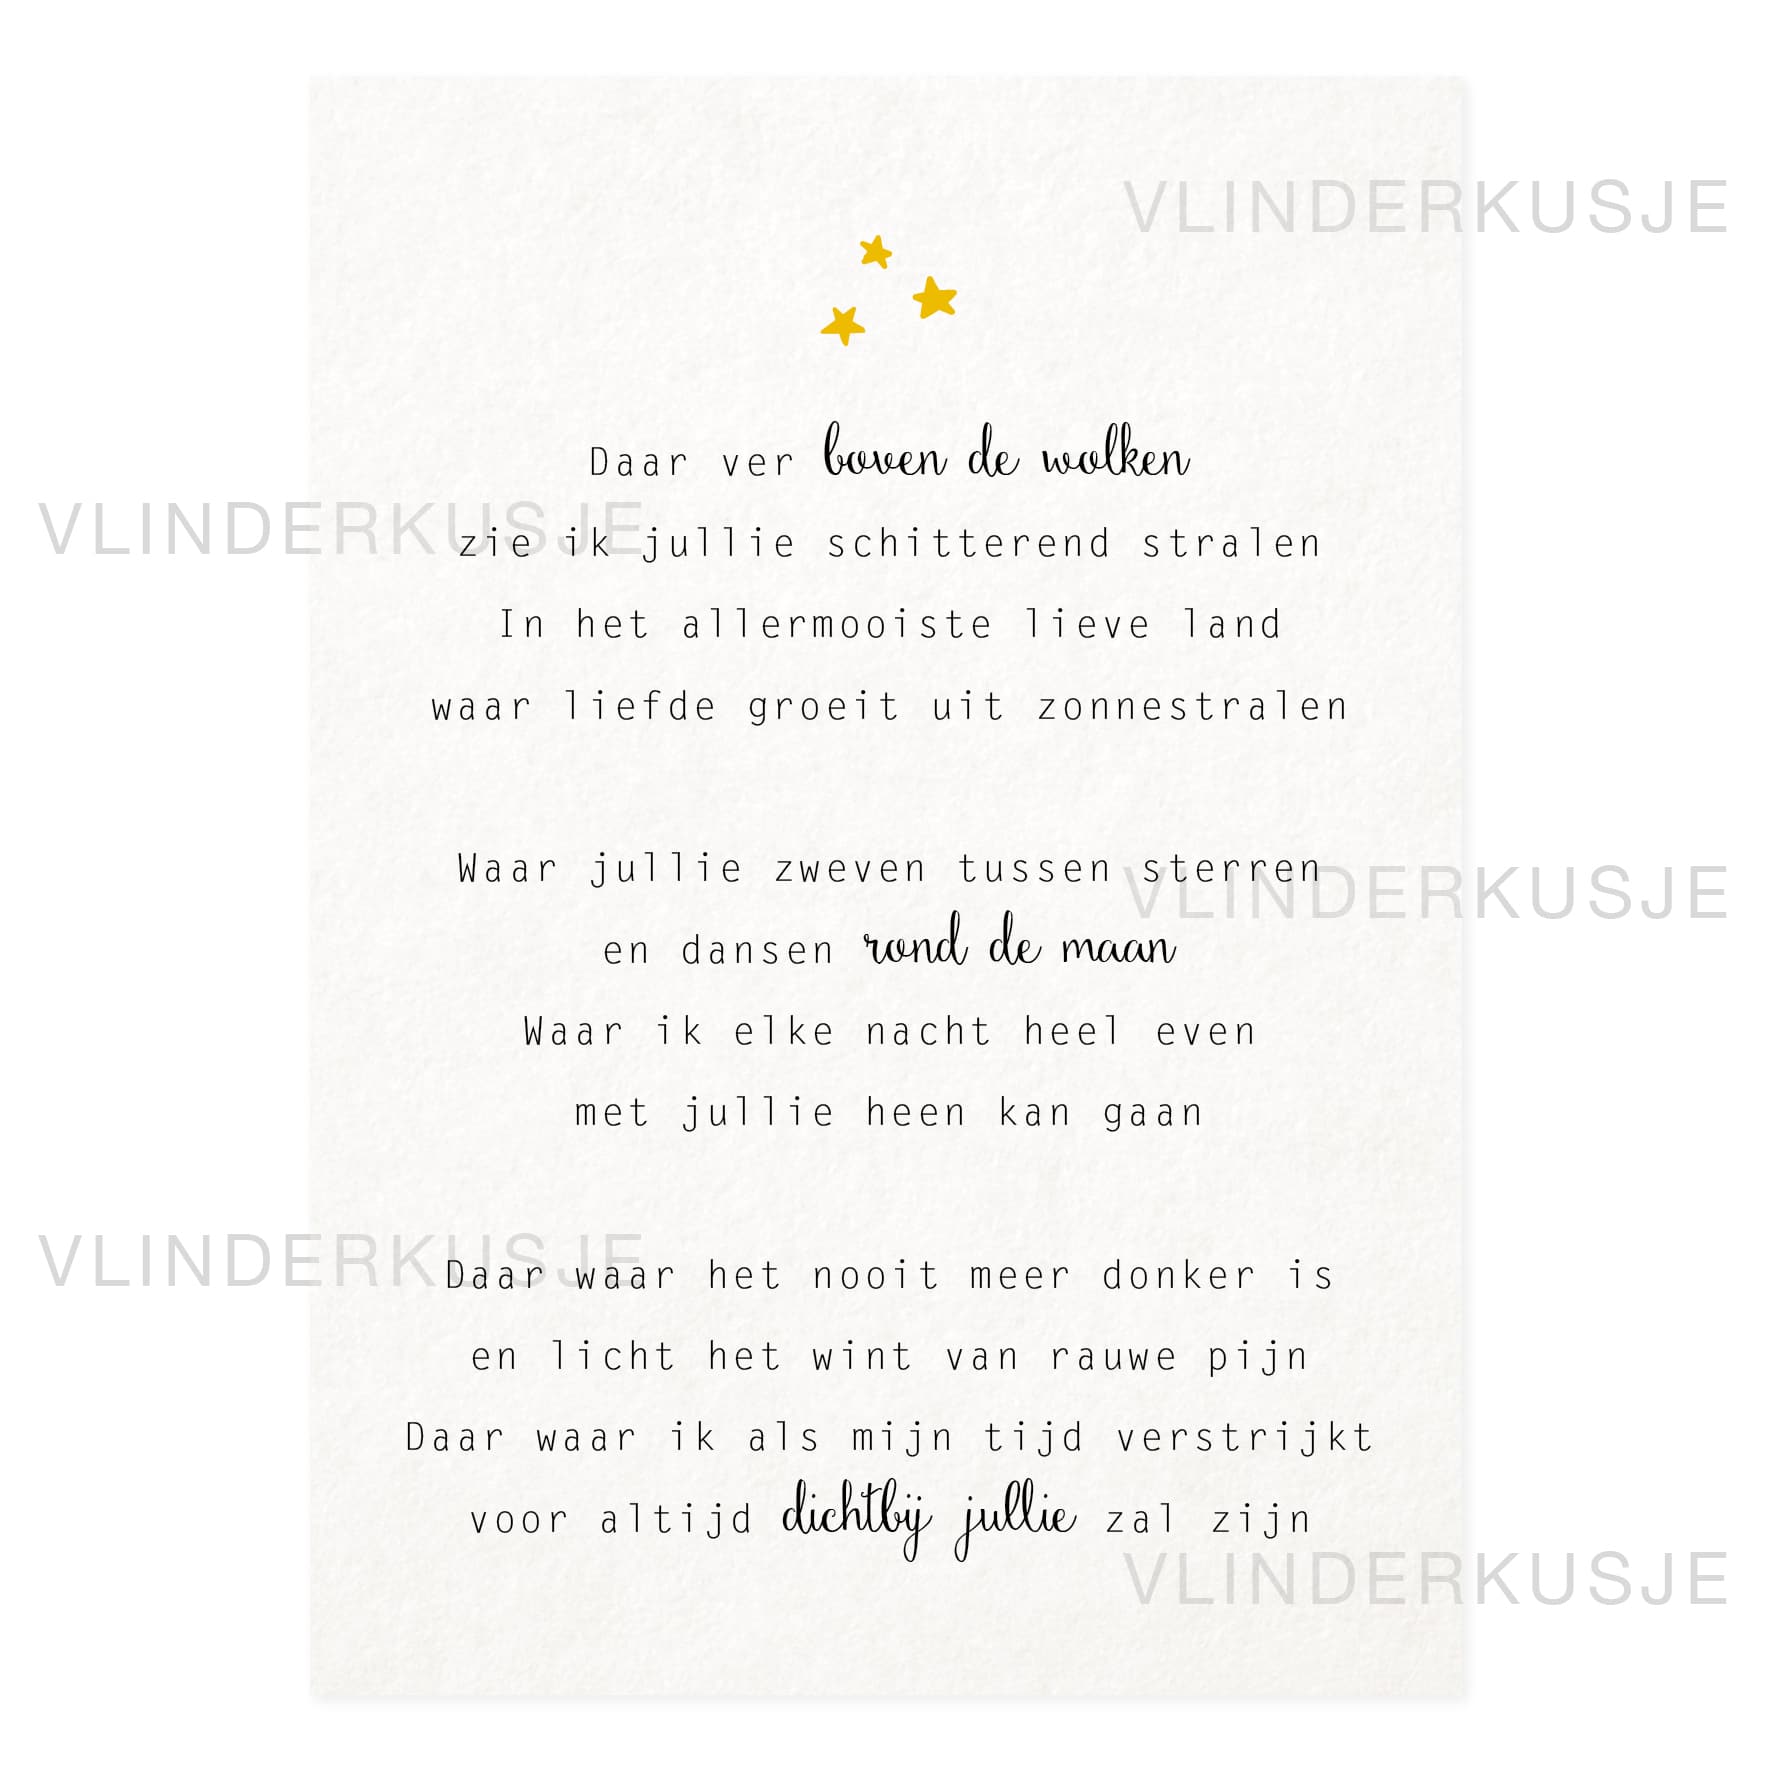 VLINDERKUSJE
Daar ver boven de wolken
VLINDERKUSJE
zie ik jullie schitterend stralen
In het allermooiste lieve land
waar liefde groeit uit zonnestralen
Waar jullie zweven tussen sterren
VLINDERKUSJE
en dansen rond de maan
Waar ik elke nacht heel even
met jullie heen kan gaan
VLINDERKUSJE
Daar waar het nooit meer donker is
en licht het wint van rauwe pijn
Daar waar ik als mijn tijd verstrijkt
voor altijd dichtbij jullie zal zijn
VLINDERKUSJE